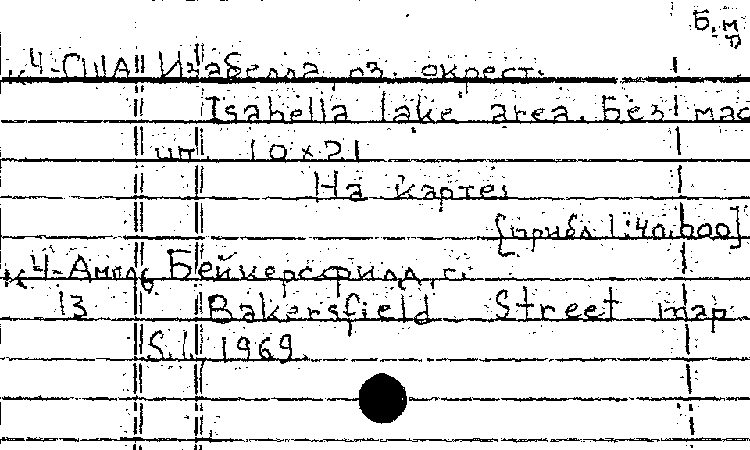 Б.м
к 4-США Изабелла, оз. окрест.
Isabella lake area. Без мас
шт. 10×21
На карте:
[прибл 1:40.000]
к 4-Англ Бейкерсфилд, г.
13 Bakersfield Street map
S.l. 1969.